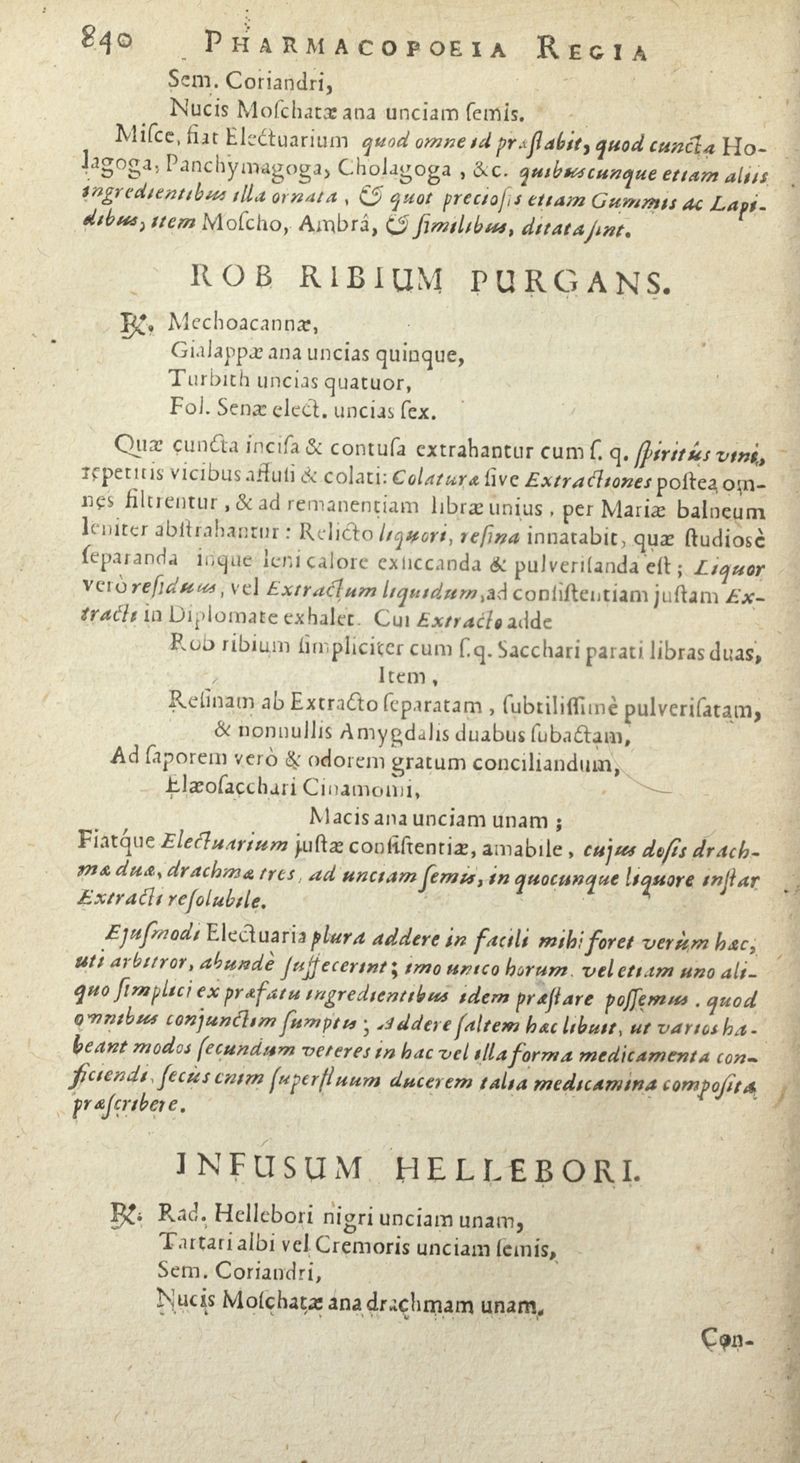 840 PHARMACOPOEIA REGIA
Sem. Coriandri,
Nucis Moſchatæ ana unciam ſemis.
Miſce, fiat Electuarium quod omne id præſtabit, quod cuncta Ho-
lagoga, Panchymagoga, Cholagoga, &c. quibuscunque etiam aliis
ingredientibus illa ornata, & quot preciosis etiam Gummis ac Lapi-
dibus, item Moſcho, Ambrâ, & ſimilibus, ditata ſint.
ROB RIBIUM PURGANS.
℞. Mechoacannæ,
Gialappæ ana uncias quinque,
Turbith uncias quatuor,
Fol. Senæ elect. uncias ſex.
Quæ cuncta inciſa & contuſa extrahantur cum ſ. q. ſpiritûs vini,
repetitis vicibus affuſi & colati: Colaturæ ſive Extractiones poſtea om-
nes filtrentur, & ad remanentiam libræ unius, per Mariæ balneum
leniter abſtrahantur: Relicto liquori, reſina innatabit, quæ ſtudioſè
ſeparanda inque leni calore exſiccanda & pulveriſanda eſt; Liquor
verò reſiduus, vel Extractum liquidum, ad conſiſtentiam juſtam Ex-
tracti in Diplomate exhalet. Cui Extracto adde
Rob ribium ſimpliciter cum ſ.q. Sacchari parati libras duas,
Item,
Reſinam ab Extracto ſeparatam, ſubtiliſſimè pulveriſatam,
& nonnullis Amygdalis duabus ſubactam,
Ad ſaporem verò & odorem gratum conciliandum,
Elæoſacchari Cinamomi,
Macis ana unciam unam;
Fiatque Electuarium juſtæ conſiſtentiæ, amabile, cujus doſis drach-
mæ duæ, drachmæ tres, ad unciam ſemis, in quocunque liquore inſtar
Extracti reſolubile.
Ejuſmodi Electuaria plura addere in facili mihi foret verùm hæc,
uti arbitror, abunde ſuffecerint; imo unico horum. vel etiam uno ali-
quo ſimplici ex præfatu ingredientibus idem præſtare poſſemus. quod
omnibus conjunctim ſumptis; Addere ſaltem hæc libuit, ut varios ha-
beant modos ſecundùm veteres in hac vel illa forma medicamenta con-
ficiendi, ſecus enim ſuperfluum ducerem talia medicamina compoſita
præſcribere.
INFUSUM HELLEBORI.
℞. Rad. Hellebori nigri unciam unam,
Tartari albi vel Cremoris unciam ſemis,
Sem. Coriandri,
Nucis Moſchatæ ana drachmam unam.
Con-